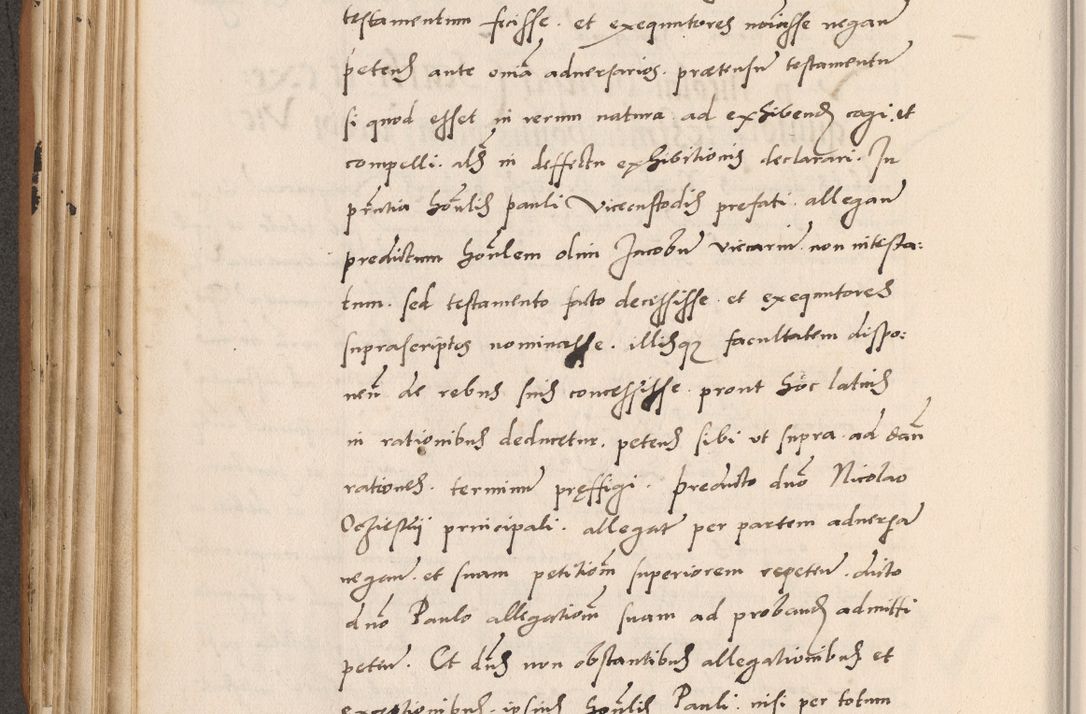 testamentum fecisse. et exequutores no͞iasse negan͂
petens ante om͂ia adversarios. prætensu͂ testamentu͂
si quod esset in rerum natura. ad exhibend̄ cogi. et
compelli. al͂s in deffectu exhibitionis declarari. In
pn͂tia ho͂nlis pauli Vicecustodis prefati. allegan͂
predictum ho͂nlem olim Jacobu͂ vicariu͂. non intesta:
tum. sed testamento facto decessisse. et exequutores
suprascriptos nominasse. illisque facultatem dispo:
nen͂ de rebus suis concessisse. prout hoc latius
in rationibus deducetur. petens sibi ut supra. ad dan͂
rationes. terminu͂ pręffigi. predicto dn͂o Nicolao
principali. allegat͂ per partem adversa͂
negan͂. et suam petitio͂m superiorem repeten͂. dicto
dn͂o Paulo allegatio͂m suam ad proband̄ admitti
peten͂. Et dn͂s non obstantibus allegationibus et
exceptionibus. ipsius ho͂nlis Pauli. nisi per totum